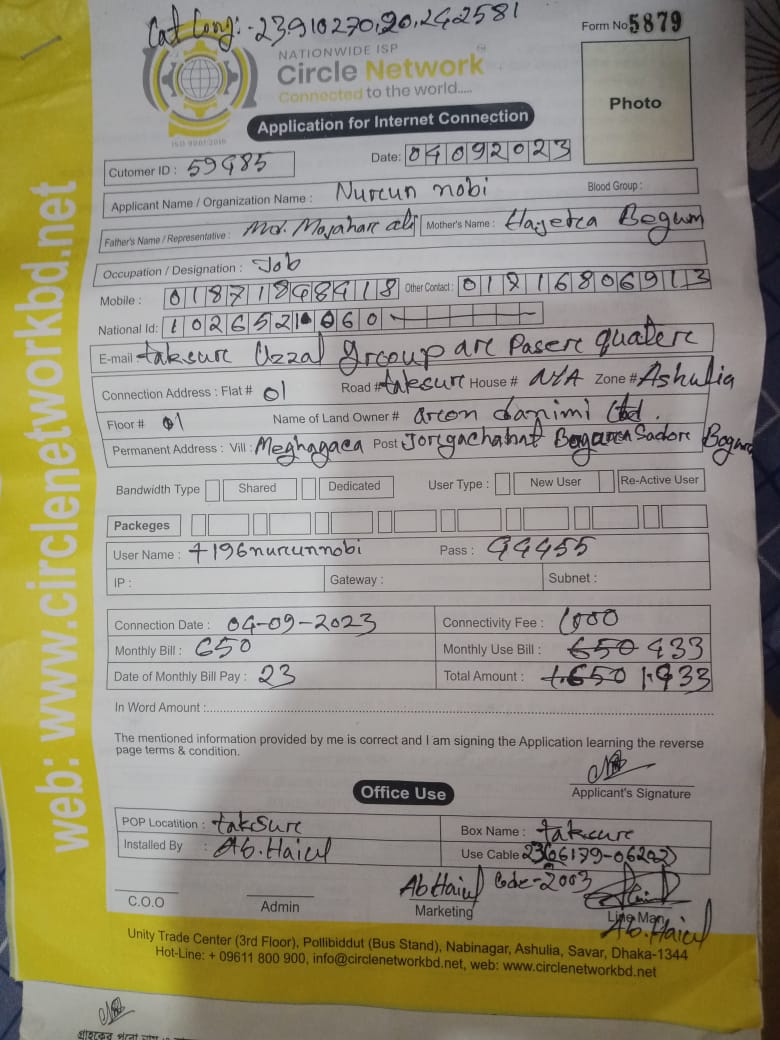 Cat Long:-23.910270,90.242581
Form No 5879
NATIONWIDE ISP
Circle Network
Connected to the world.....
ISO 9001:2015
Photo
Application for Internet Connection
Cutomer ID : 59485 Date: 04092023
Applicant Name / Organization Name : Nurun nobi Blood Group :
Father's Name / Representative : Md. Mojahar ali Mother's Name : Hajera Begum
Occupation / Designation : Job
Mobile : Other Contact : 01816806913
National Id:
E-mail taksure Uzzal group ar Paser quater
Connection Address : Flat # 01 Road # taksur House # N/A Zone # Ashulia
Floor # 01 Name of Land Owner # Ltd.
Permanent Address : Vill : Meghagaca Post Jorgachahat Sador
Bandwidth Type Shared Dedicated User Type : New User Re-Active User
Packeges
User Name : 7196nurunnobi Pass : 44455
IP : Gateway : Subnet :
Connection Date : 04-09-2023 Connectivity Fee : 1000
Monthly Bill : 650 Monthly Use Bill : 650 433
Date of Monthly Bill Pay : 23 Total Amount : 1.650 1.433
In Word Amount :
The mentioned information provided by me is correct and I am signing the Application learning the reverse
page terms & condition.
Applicant's Signature
Office Use
POP Locatition : taksure Box Name : taksure
Installed By : Ab. Haiul Use Cable
Ab Haiul Code-2003
C.O.O Admin Marketing Line Man
Ab. Haiul
Unity Trade Center (3rd Floor), Pollibiddut (Bus Stand), Nabinagar, Ashulia, Savar, Dhaka-1344
Hot-Line: + 09611 800 900, info@circlenetworkbd.net, web: www.circlenetworkbd.net
web: www.circlenetworkbd.net